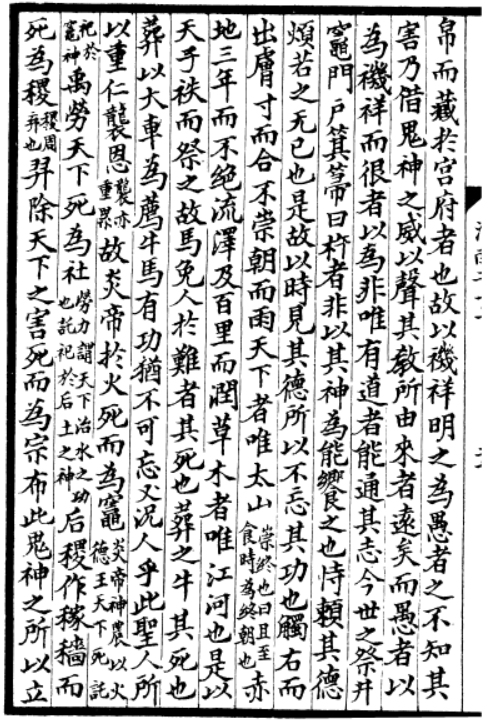 帛而藏於宫府者也故以禨祥明之為愚者之不知其
害乃借鬼神之威以聲其教所由來者遠矣而愚者以
為禨祥而很者以為非唯有道者能通其志今世之祭井
竈門户箕箒曰杵者非以其神為能饗之也恃賴其德
煩若之无已也是故以時見其德所以不忘其功也觸右而
出膚寸而合不崇朝而雨天下者唯太山崇終也日旦至食時為終朝也赤
地三年而不絶流澤及百里而潤草木者唯江河也是以
天子袟而祭之故馬免人於難者其死也葬之牛其死也
葬以大車為薦牛馬有功猶不可忘又況人乎此聖人所
以重仁襲恩襲亦重累故炎帝於火死而為竈炎帝神農以火德王天下死託
祀於竈神禹勞天下死為社勞力謂天下治水之功也託祀於后土之神后稷作稼穡而
死為稷稷周弃也羿除天下之害死而為宗布此鬼神之所以立